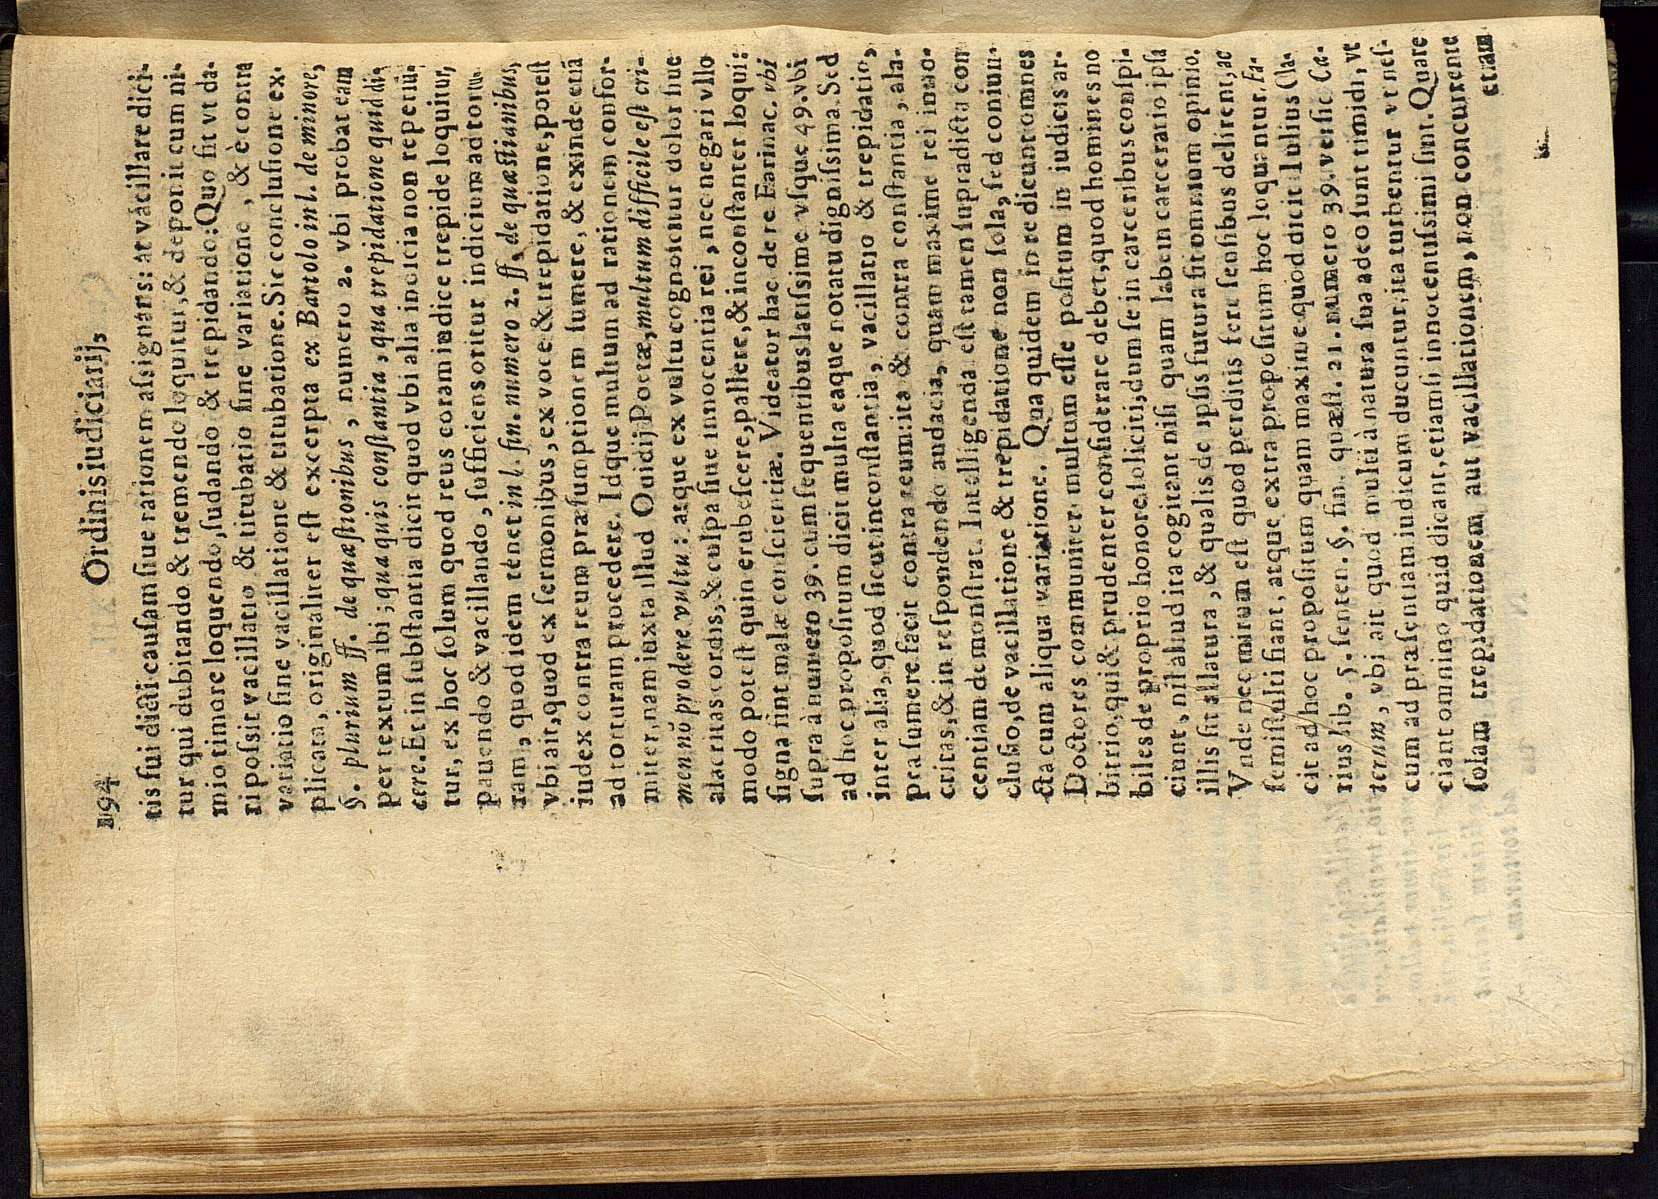 194 Ordinis iudiciarij,
tis sui dicti causam siue rationem assignans: at vacillare dici-
tur qui dubitando & tremendo loquitur, & deponit cum ni-
mio timore loquendo, sudando & trepidando: Quo fit vt da-
ri possit vacillatio & titubatio sine variatione, & è contra
variatio sine vacillatione & titubatione. Sic conclusione ex-
plicata, originaliter est excerpta ex Bartolo in l. de minore,
§. plurium ff. de quæstionibus, numero 2. vbi probat eam
per textum ibi; qua quis constantia, qua trepidatione quid di-
cere. Et in substantia dicit quod vbi alia indicia non reperiũ-
tur, ex hoc solum quod reus coram iudice trepide loquitur,
pauendo & vacillando, sufficiens oritur indicium ad tortu-
ram, quod idem tenet in l. fin. numero 2. ff. de quæstionibus,
vbi ait, quod ex sermonibus, ex voce & trepidatione, potest
iudex contra reum præsumptionem sumere, & exinde etiã
ad torturam procedere. Idque multum ad rationem confor-
miter, nam iuxta illud Ouidij Poetæ, multum difficile est cri-
men nõ prodere vultu: atque ex vultu cognoscitur dolor siue
alacritas cordis, & culpa siue innocentia rei, nec negari vllo
modo potest quin erubescere, pallere, & inconstanter loqui:
signa sint malæ conscientiæ. Videatur hac de re Farinac. vbi
supra à numero 39. cum sequentibus latissime vsque 49. vbi
ad hoc propositum dicit multa eaque notatu dignissima. Sed
inter alia, quod sicut inconstantia, vacillatio & trepidatio,
præsumere facit contra reum: ita & contra constantia, ala-
critas, & in respondendo audacia, quam maxime rei inno-
centiam demonstrat. Intelligenda est tamen supradicta con
clusio, de vacillatione & trepidatione non sola, sed coniun-
cta cum aliqua variatione. Qua quidem in re dicunt omnes
Doctores communiter multum esse positum in iudicis ar-
bitrio, qui & prudenter considerare debet, quod homines no
biles de proprio honore soliciti, dum se in carceribus conspi-
ciunt, nil aliud ita cogitant nisi quam labem carceratio ipsa
illis sit allatura, & qualis de ipsis futura sit omnium opinio.
Vnde nec mirum est quod perditis fere sensibus delirent, ac
semistulti fiant, atque extra propositum hoc loquantur. Fa-
cit ad hoc propositum quam maxime quod dicit Iulius Cla-
rius lib. 5. senten. §. fin. quæst. 21. numero 39. versic. Cæ-
terum, vbi ait quod multi à natura sua adeo sunt timidi, vt
cum ad præsentiam iudicum ducuntur, ita turbentur vt nes-
ciant omnino quid dicant, etiamsi innocentissimi sint. Quare
solam trepidationem aut vacillationem, non concurrente
etiam